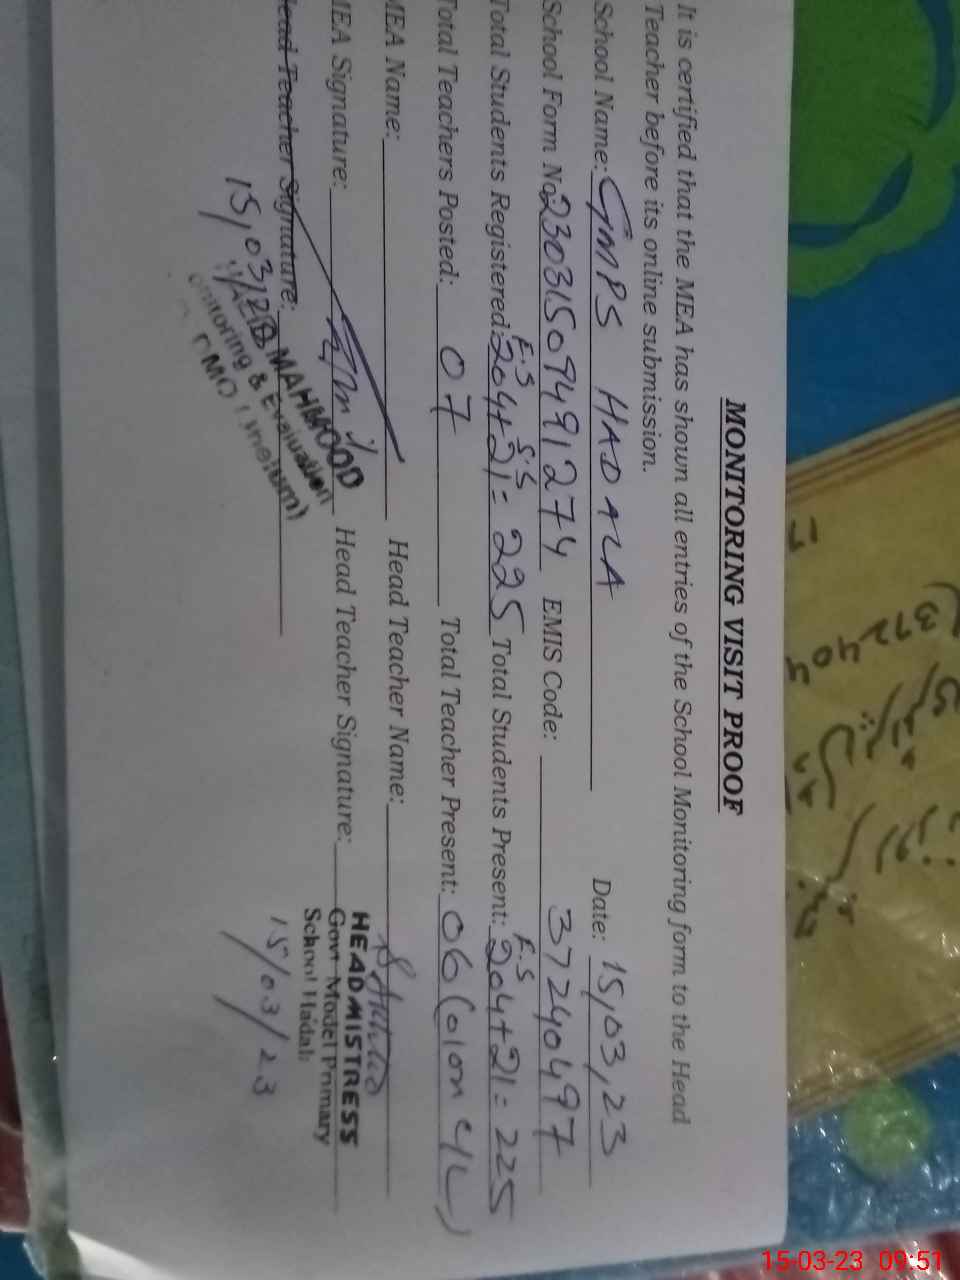 MONITORING VISIT PROOF
It is certified that the MEA has shown all entries of the School Monitoring form to the Head
Teacher before its online submission.
School Name: GMPS HADALA Date: 15,03,23
School Form No: 2303150949127 4 EMIS Code: 37240497
E.S S.S E.S
Total Students Registered: 204+21= 225 Total Students Present: 204+21= 225
Total Teachers Posted: 07 Total Teacher Present: 06 (01 on
MEA Name: Head Teacher Name:
MEA Signature: Head Teacher Signature:
HEADMISTRESS
Govt Model Primary
School Hadala
Head Teacher Signature:
MAHMOOD
Monitoring & Evaluation
15/03/23
15-03-23 09:51